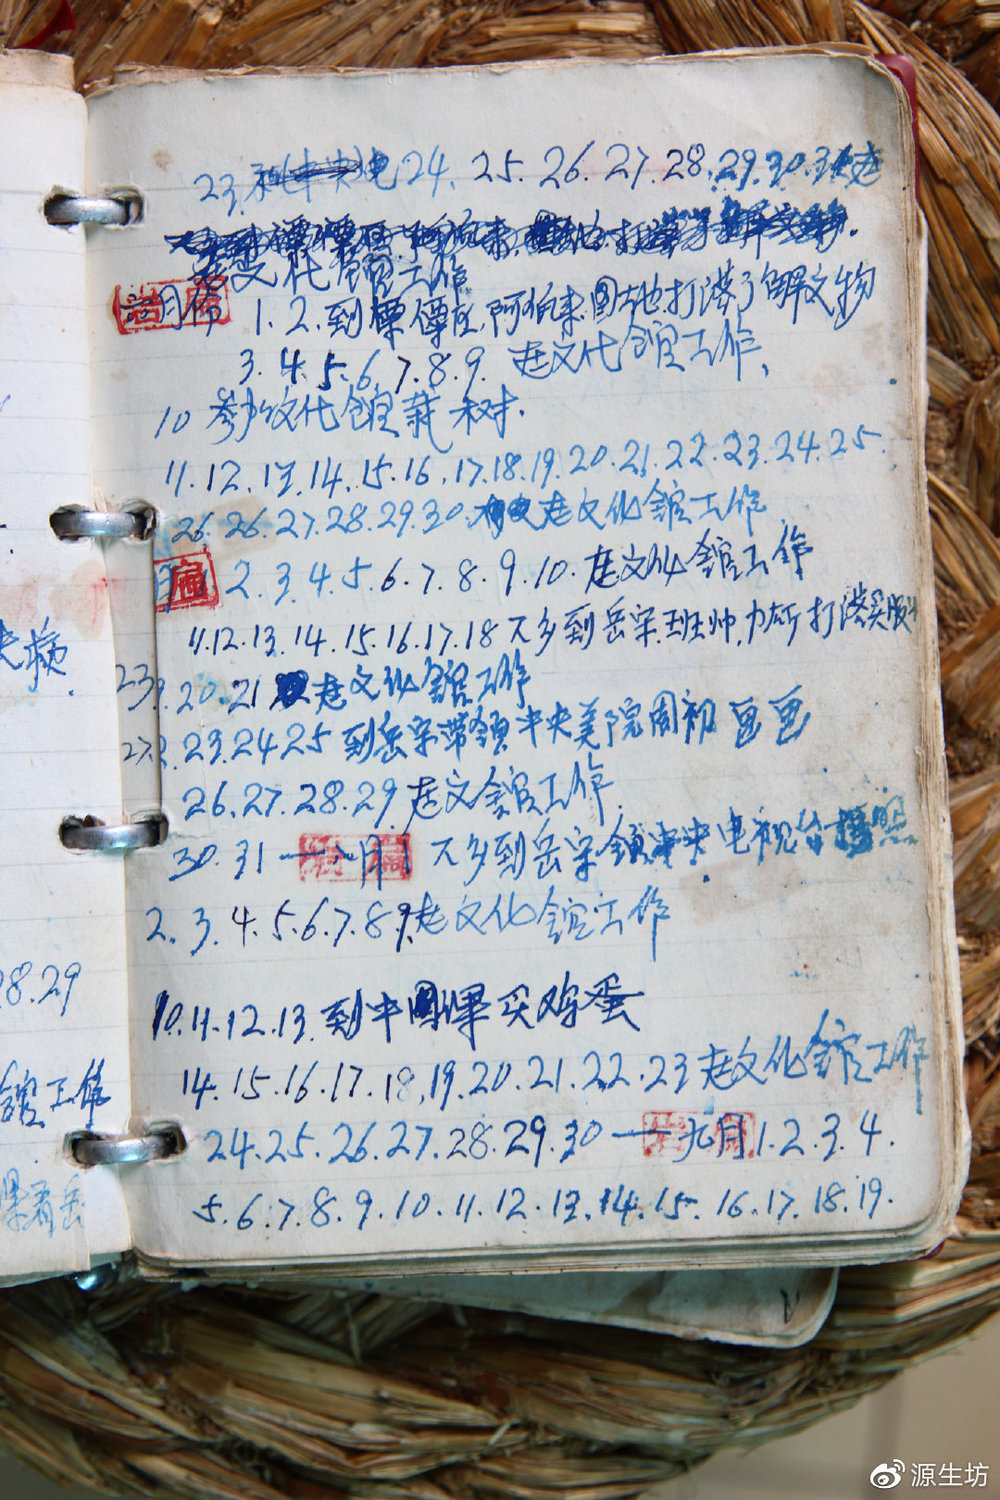 23. 24. 25. 26. 27. 28. 29. 30. 31 走
走文化馆工作
月 1. 2. 到 阿伯来. 打 了解文物
3. 4. 5. 6. 7. 8. 9. 走文化馆工作.
10 参加文化馆栽树.
11. 12. 13. 14. 15. 16. 17. 18. 19. 20. 21. 22. 23. 24. 25.
26. 26. 27. 28. 29. 30. 走文化馆工作
2. 3. 4. 5. 6. 7. 8. 9. 10. 走文化馆工作
11. 12. 13. 14. 15. 16. 17. 18 下乡到岳宗 班帅. 力所 打 买服
20. 21 走文化馆工作
23. 24 25 到岳宗带领中央美院周初画画
26. 27. 28. 29 走文馆工作
30. 31 一 月1 下乡到岳宗 领中央电视台摄照
2. 3. 4. 5. 6. 7. 8 9. 走文化馆工作
10. 11. 12. 13. 到中 买鸡蛋
14. 15. 16. 17. 18. 19. 20. 21. 22. 23 走文化馆工作
24. 25. 26. 27. 28. 29. 30 一 九月 1. 2. 3. 4.
5. 6. 7. 8. 9. 10. 11. 12. 13. 14. 15. 16. 17. 18. 19.
23
27.
8. 29
馆工作
看岳
源生坊